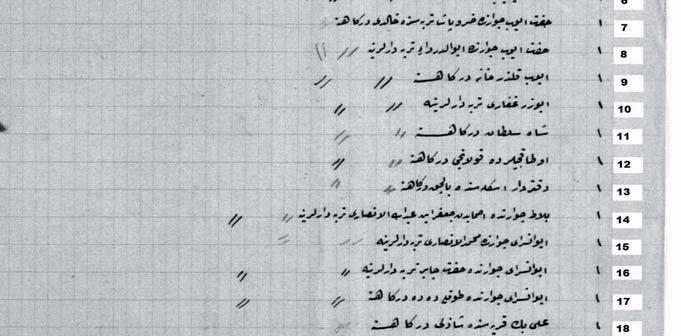 6
7 ١ حضرت ایوب جوارنده خسرو پاشا تربه‌سنده خالدی درگاهنه
8 ١ حضرت ایوب جوارنده ابوالدرداء تربه‌دارلرینه 〃 〃
9 ١ ایوب قلندرخانه درگاهنه 〃 〃
10 ١ ابوذر غفاری تربه‌دارلرینه 〃 〃
11 ١ شاه سلطان درگاهنه 〃 〃
12 ١ اوطاقجیلرده قولاغی درگاهنه 〃 〃
13 ١ دفتردار اسکله‌سنده یالجق درگاهنه 〃 〃
14 ١ بلاط جوارنده جعفر ابن عبدالله الانصاری تربه‌دارلرینه 〃 〃
15 ١ ایوانسرای جوارنده محمد الانصاری تربه‌دارلرینه 〃 〃
16 ١ ایوانسرای جوارنده حضرت جابر تربه‌دارلرینه 〃 〃
17 ١ ایوانسرای جوارنده طوقلی دده درگاهنه 〃 〃
18 ١ علی بك قریه‌سنده شاذلی درگاهنه 〃